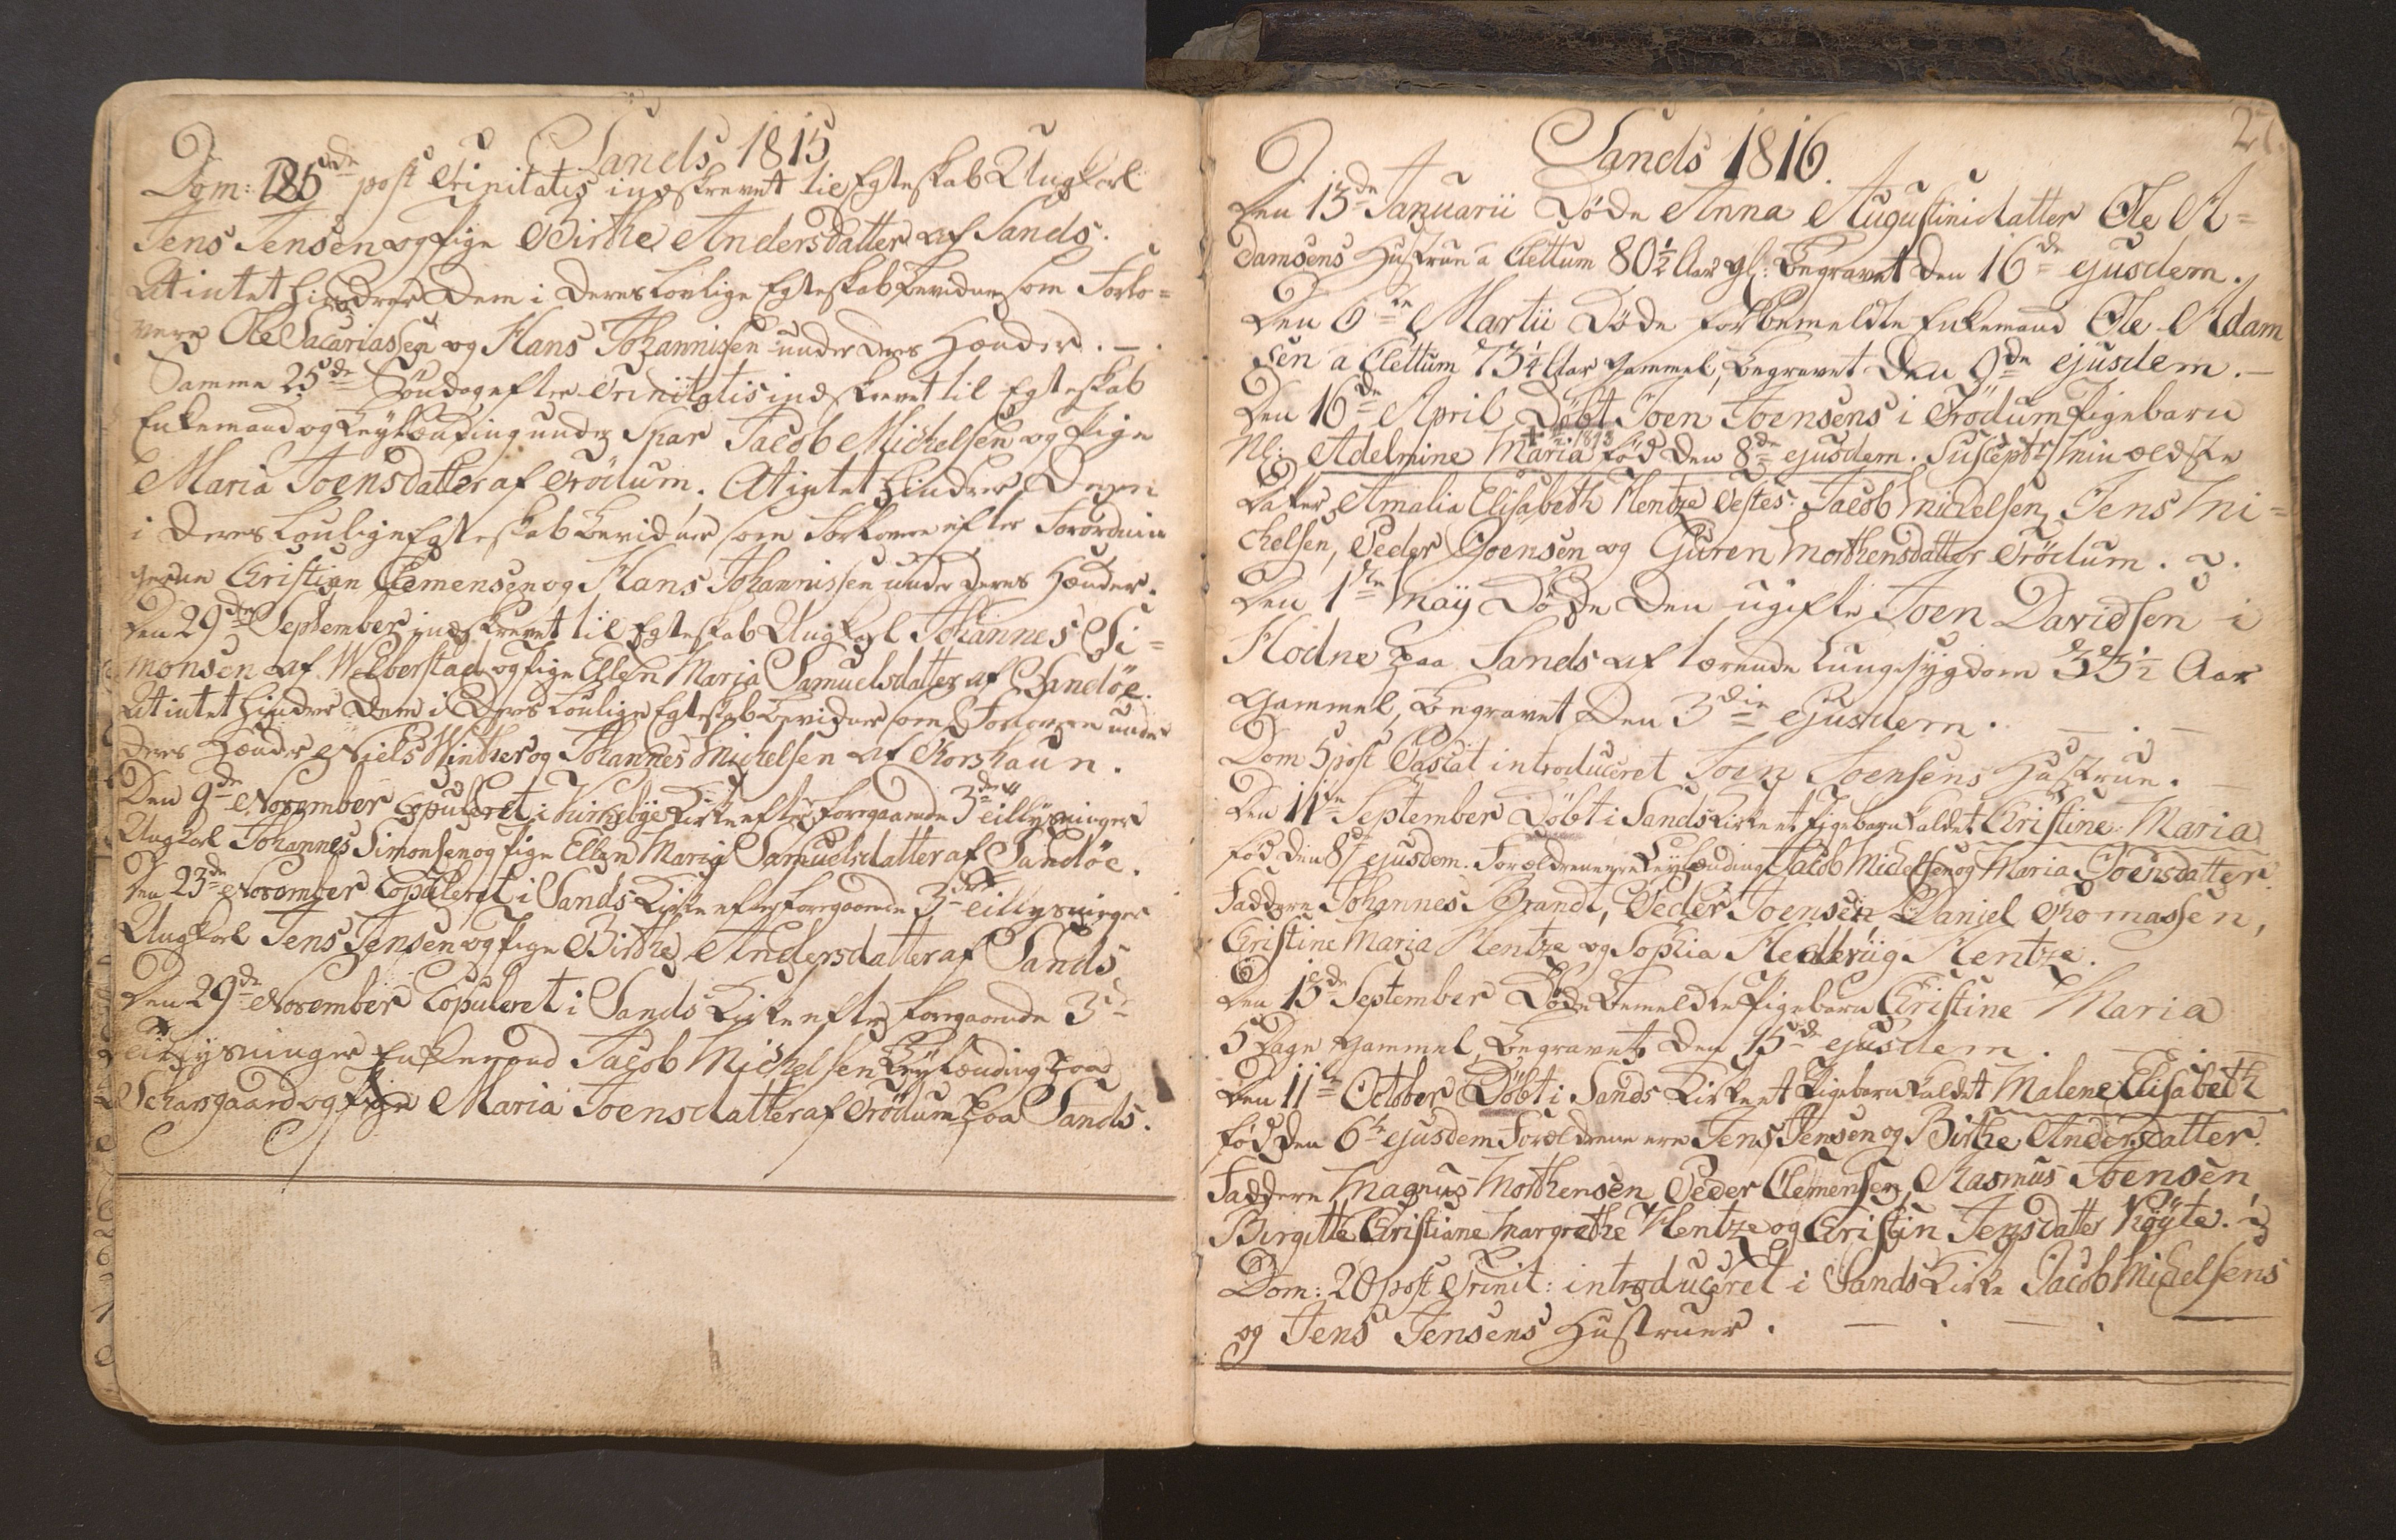 Sands 1815
Dom: 25de post Trinitatis indskrevet til Egteskab Ungkarl
Jens Jensen og Pige Birthe Andersdatter af Sands.
At intet hindrer Dem i Deres lovlige Egteskab bevidner som Forlo=
vere Ole Sacariassen og Hans Johannissen under Deres Hænder. -.
Samme 25de Søndag efter Trinitatis indskrevet til Egteskab
Enkemand og Leylænding under Skar Jacob Michelsen og Pige
Maria Joensdatter af Trödum. At intet hindrer Dem
i Deres lovlige Egteskab bevidner som Forlovere efter Forordnin
gerne Christian Clemensen og Hans Johannissen under Deres Hænder.
Den 29de September indskrevet til Egteskab Ungkarl Johannes Si=
monsen af Welberstad og Pige Ellen Maria Samuelsdatter af Sandöe.
At intet hindrer Dem i Deres lovlige Egteskab bevidner som Forlovere under
Deres Hænder Niels Winther og Johannes Michelsen af Thorshaun.
Den 9de November Copuleret i Kirkebye Kirke efter foregaaende 3de Tillysninger
Ungkarl Johannes Simonsen og Pige Ellen Maria Samuelsdatter af Sandöe.
Den 23de November Copuleret i Sands Kirke efter foregaaende 3de Tillysninger
Ungkarl Jens Jensen og Pige Birthe Andersdatter af Sands
Den 29de November Copuleret i Sands Kirke efter foregaaende 3de
Tillysninger Enkemand Jacob Michelsen Leylænding paa
Scharsgaard og Pige Maria Joensdatter af Trödum paa Sands.
27.
Sands 1816.
Den 13de Januarii Døde Anna Augustinidatter Ole A=
damsens Hustrue a Clettum 80½ Aar gl: begravet Den 16de ejusdem.
Den 6te Martii Døde forbemeldte Enkemand Ole Adam
sen a Clettum 73¼ Aar gammel, begravet Den 9de ejusdem. -
Den 16de April Døbt Joen Joensens i Trödum Pigebarn
Nl: Adelmine Maria fød Den 8de ejusdem. Suscept: min ældste
Datter Amalia Elisabeth Hentze Testes: Jacob Michelsen, Jens Mi=
chelsen, Peder Joensen og Guren Morthensdatter Trödum.
Den 1ste Maÿ Døde Den ugifte Joen Davidsen i
Hodne paa Sands af tærende Lungesygdom Aar
gammel, begravet Den 3die ejusdem. - . -
Dom 5 post Pascat introduceret Joen Joensens Hustrue. -
Den 11te September Døbt i Sands Kirke et Pigebarn kaldet Christine Maria
fød Den 8de ejusdem. Forældrene ere Leylænding Jacob Michelsen og Maria Joensdatter.
Faddere Johannes Brandt, Peder Joensen Daniel Thomassen,
Christine Maria Hentze og Sophia Hedevig Hentze.
Den 13de September Døde bemeldte Pigebarn Christine Maria
5 Dage gammel, begravet Den 15de ejusdem.
Den 11te October Døbt i Sands Kirke et Pigebarn kaldet Malene Elisabeth
fød Den 6te ejusdem Forældrene ere Jens Jensen og Birthe Andersdatter.
Faddere Magnus Morthensen, Peder Clemensen, Rasmus Joensen
Birgitte Christiane Margrethe Hentze og Christin Jensdatter Köyte.
Dom: 20 post Trinit: introduceret i Sands Kirke Jacob Michelsens
og Jens Jensens Hustruer. - . - .